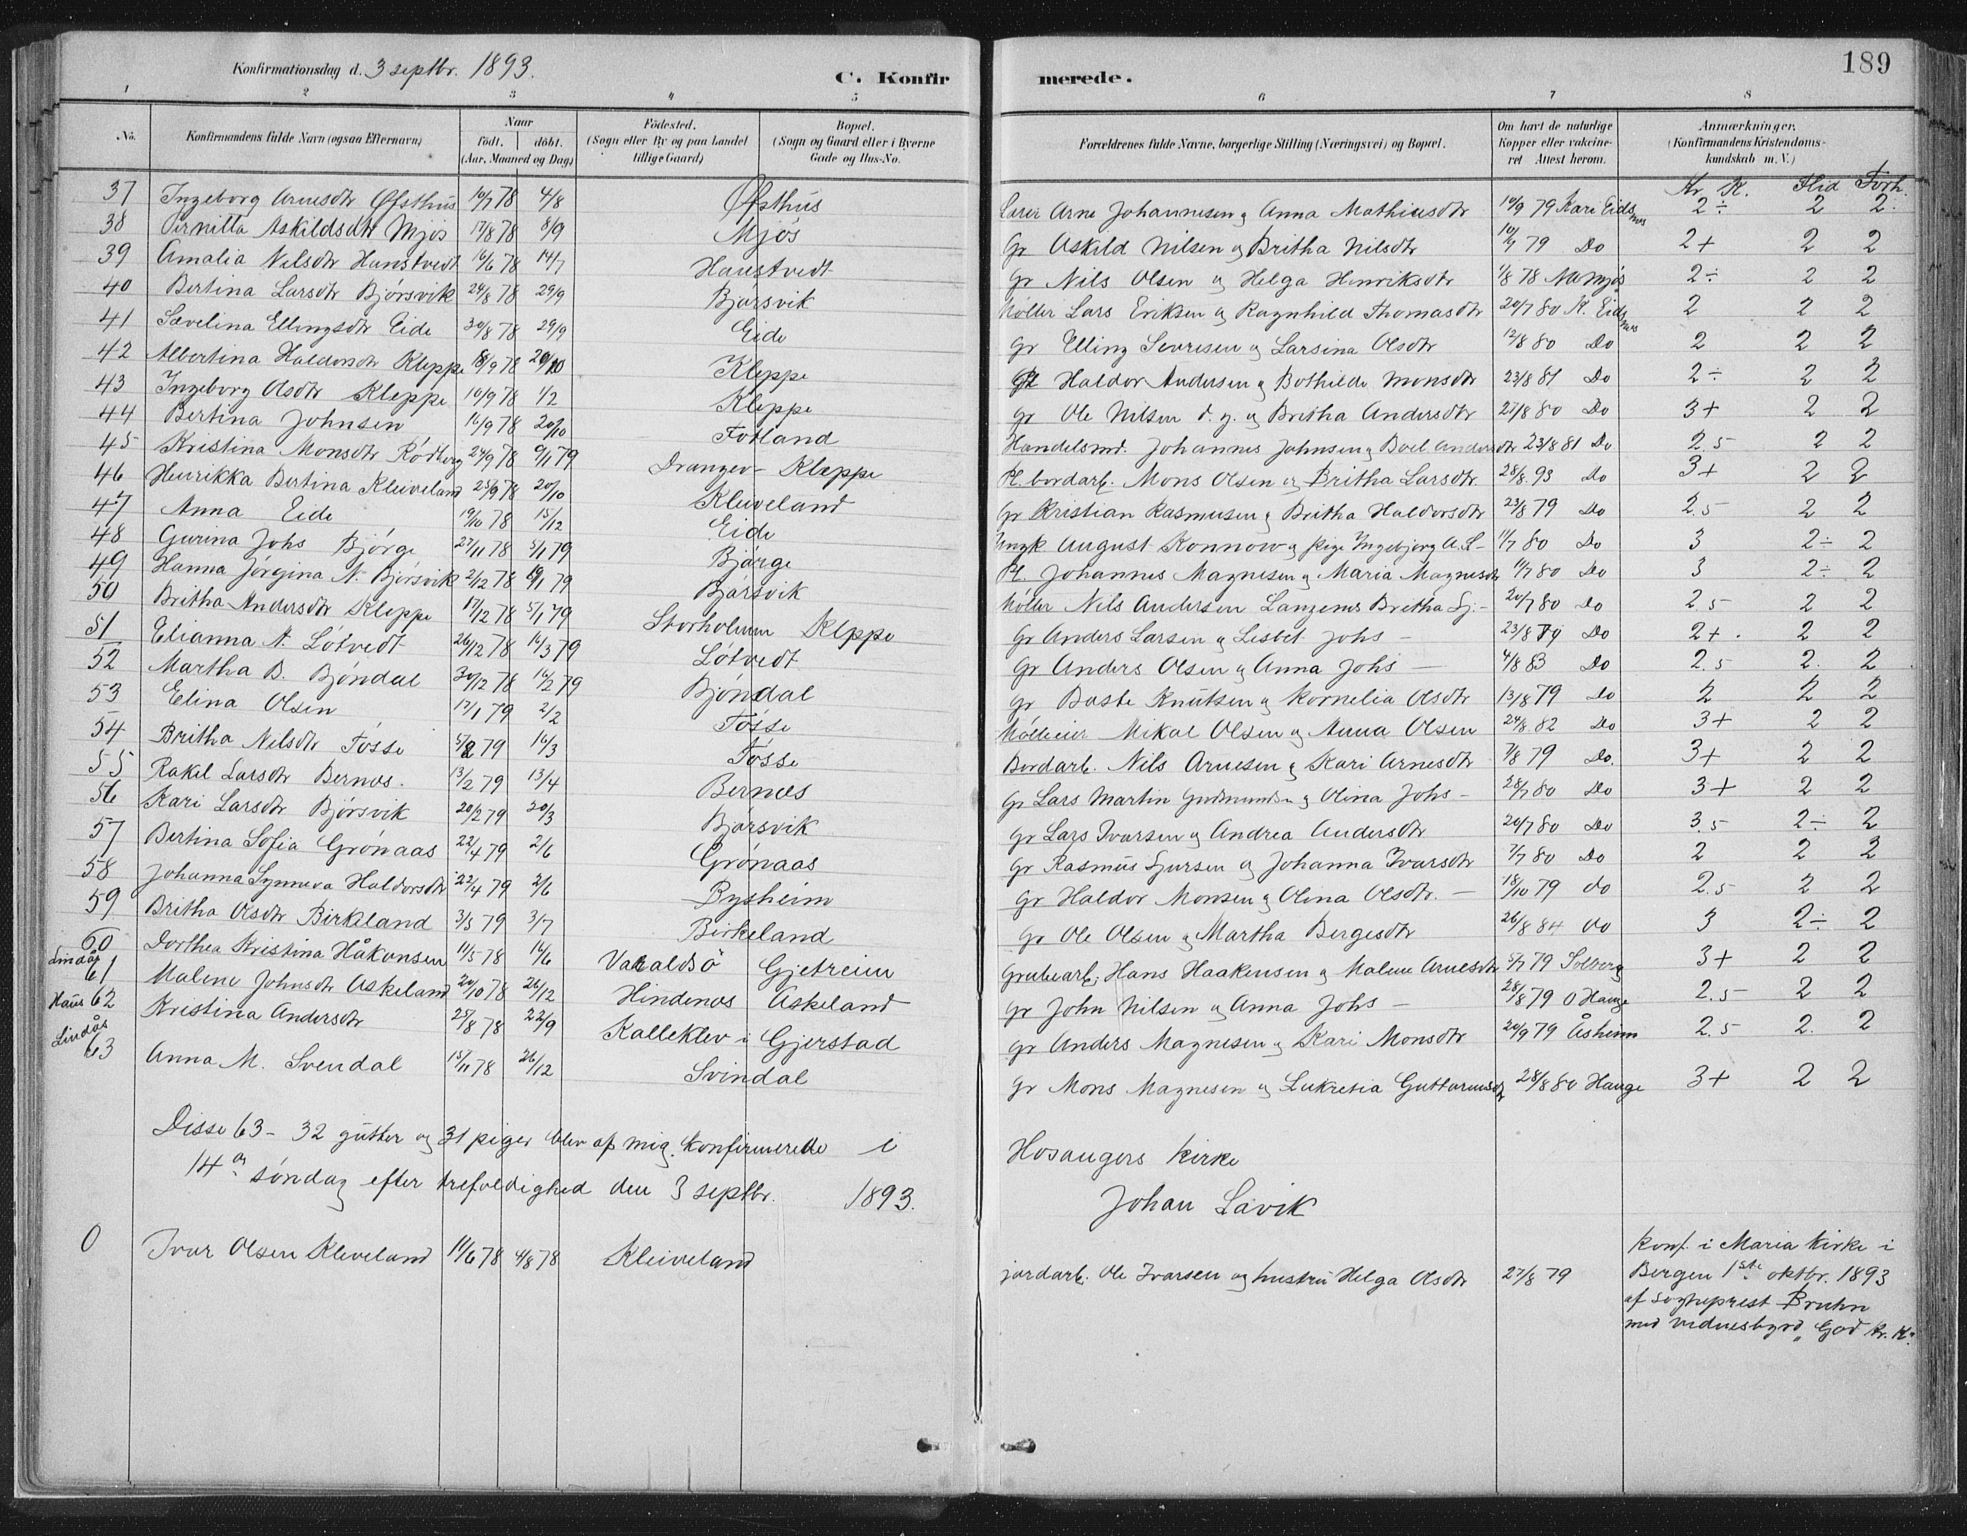 Konfirmationsdag d. 3 septbr. 1893.
C. Konfirmerede.
189
1 2 3 4 5 6 7 8
No. Konfirmandens fulde Navn (ogsaa Efternavn) Naar født. døbt. (Aar, Maaned og Dag) Fødested. (Sogn eller By og paa Landet tillige Gaard) Bopæl. (Sogn og Gaard eller i Byerne Gade og Hus-No. Forældrenes fulde Navne, borgerlige Stilling (Næringsvei) og Bopæl. Om havt de naturlige Kopper eller vakcineret. Attest herom. Anmærkninger. (Konfirmandens Kristendomskundskab m. V.)
Kr. K. Flid Forh.
37 Ingeborg Arnesdtr Øfsthus 10/7 78 4/8 Øfsthus Lærer Arne Johannesen og Anna Mathiasdtr 10/9 79 Kari Eidsnes 2÷ 2 2
38 Pernilla Askildsdtr Mjøs 17/8 78 8/9 Mjøs Gr Askild Nilsen og Britha Nilsdtr 10/7 79 Do 2+ 2 2
39 Amalia Nilsdtr Haustvedt 16/6 78 14/7 Haustvedt Gr Nils Olsen og Helga Henriksdtr 1/8 78 2÷ 2 2
40 Bertina Larsdtr Bjørsvik 24/8 78 29/9 Bjørsvik Møller Lars Eriksen og Ragnhild Thomasdtr 20/7 80 K. Eidsnes 2 2 2
41 Sævelina Ellingsdtr Eide 30/8 78 29/9 Eide Gr Elling Severesen og Larsina Olsdtr 12/8 80 Do 2 2 2
42 Albertina Haldorsdtr Kleppe 8/9 78 20/10 Kleppe Haldor Andersen og Bothilde Monsdtr 23/8 81 Do 2÷ 2 2
43 Ingeborg Olsdtr Kleppe 10/9 78 1/2 Kleppe Gr Ole Nilsen d. y. og Britha Andersdtr 27/8 80 Do 3+ 2 2
44 Bertina Johnsen 16/9 78 20/10 Fotland Handelsmd. Johannes Johnsen og Boel Andersdtr 23/8 81 Do 2.5 2 2
45 Kristina Monsdtr Rødberg 24/9 78 9/1 79 Drangev- Kleppe Pl. bordarb. Mons Olsen og Britha Larsdtr 28/8. 93 Do 3+ 2 2
46 Henrikka Bertina Kleiveland 25/9 78 20/10 Kleiveland Gr Kristian Rasmusen og Britha Haldorsdtr 23/8 79 Do 2.5 2 2
47 Anna Eide 19/10 78 15/12 Eide Ungk August Konnow og pige Ingebjørg A. L- 11/7 80 Do 3 2÷ 2
48 Gurina Johs Bjørge 27/11 78 5/1 79 Bjørge Pl. Johannes Magnesen og Maria Magnesdtr 11/7 80 Do 3 2÷ 2
49 Hanna Jørgina N. Bjørsvik 2/12 78 19/1 79 Bjørsvik Møller Nils Andersen Langenes Britha Sj.- 20/7 80 Do 2.5 2 2
50 Britha Andersdtr Kleppe 17/12 78 5/1 79 Storholmen Kleppe Gr Anders Larsen og Lisbet Johs - 23/8 79 Do 2+. 2 2
51 Elianna A. Løtvedt 26/12 78 16/3 79 Løtvedt Gr Anders Olsen og Anna Johs — 4/8 83 Do 2.5 2. 2
52 Martha B. Bjøndal 30/12 78 16/2 79 Bjøndal Gr Baste Knutsen og Kornelia Olsdtr 13/8 79 Do 2 2 2
53 Elina Olsen 12/1 79 2/2 Fosse Mølleeier Mikal Olsen og Anna Olsen 24/8 82 Do 3+ 2 2
54 Britha Nilsdtr Fosse 5/2 79 16/3 Fosse Bordarb. Nils Arnesen og Kari Arnesdtr 7/8 79 Do. 3+ 2 2
55 Rakel Larsdtr Bernæs. 13/2 79 13/4 Bernæs Gr Lars Martin Gudmundsen og Olina Johs - 28/7 80 Do 3+ 2 2
56 Kari Larsdtr Bjørsvik 20/2 79 20/3 Bjørsvik Gr Lars Ivarsen og Andrea Andersdtr 20/7 80 Do 3.5 2÷ 2
57 Bertina Sofia Grønaas 22/4 79 2/6 Grønaas Gr Rasmus Sjursen og Johanna Ivarsdtr 7/7 80 Do 2 2 2
58 Johanna Synneva Haldorsdtr 22/4 79 2/6 Bysheim Gr Haldor Monsen og Olina Olsdtr. — 18/10 79 do 2.5 2 2
59 Britha Olsdtr Birkeland 3/5 79 3/7 Birkeland Gr Ole Olsen og Martha Bergesdtr 26/8 84 do 3 2÷ 2
60 Dorthea Kristina Håkonsen 11/5 78 16/6 Varaldsø Gjetreim Grubearb. Hans Haakensen og Malene Arnesdtr 5/7 79 Solberg 3+ 2 2
Lindås 61 Malene Johnsdtr Askeland 20/10 78 26/12 Hindenes Askeland Gr John Nilsen og Anna Johs — 28/8 79 O Hauge 2.5 2 2
Haus 62 Kristina Andersdtr 25/8 78 22/9 Kalleklev i Gjerstad Gr Anders Magnesen og Kari Monsdtr 20/9 79 Åsheim 2.5 2. 2
Lindås 63 Anna M. Svendal 15/11 78 26/12 Svindal Gr Mons Magnesen og Lukretia Guttormsdtr 28/8 80 Hauge 3+ 2 2
Disse 63 - 32 gutter og 31 piger blev af mig konfirmerede i Hosangers kirke
14de søndag efter trefoldighed den 3 septbr. 1893.
Johan Lavik
0 Ivar Olsen Kleveland 11/6 78 4/8 78 Kleiveland jordarb. Ole Ivarsen og hustru Helga Olsdtr 27/8 79 konf. i Maria kirke i
Bergen 1ste oktbr. 1893
af sogneprest Bruhn
med vidnesbyrd „God kr. k."